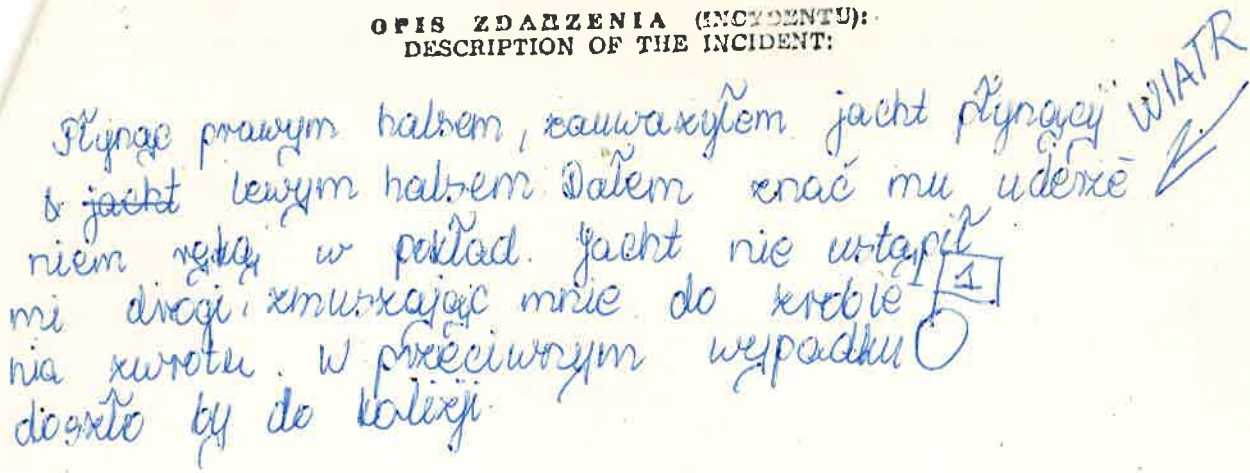 OPIS ZDARZENIA (INCYDENTU):
DESCRIPTION OF THE INCIDENT:
WIATR
Płynąc prawym halsem, zauważyłem jacht płynący
jacht lewym halsem. Dałem znać mu uderze
niem ręką w pokład. Jacht nie ustąpił
mi drogi, zmuszając mnie do zrobie
1
nia zwrotu. W przeciwnym wypadku
doszło by do kolizji.